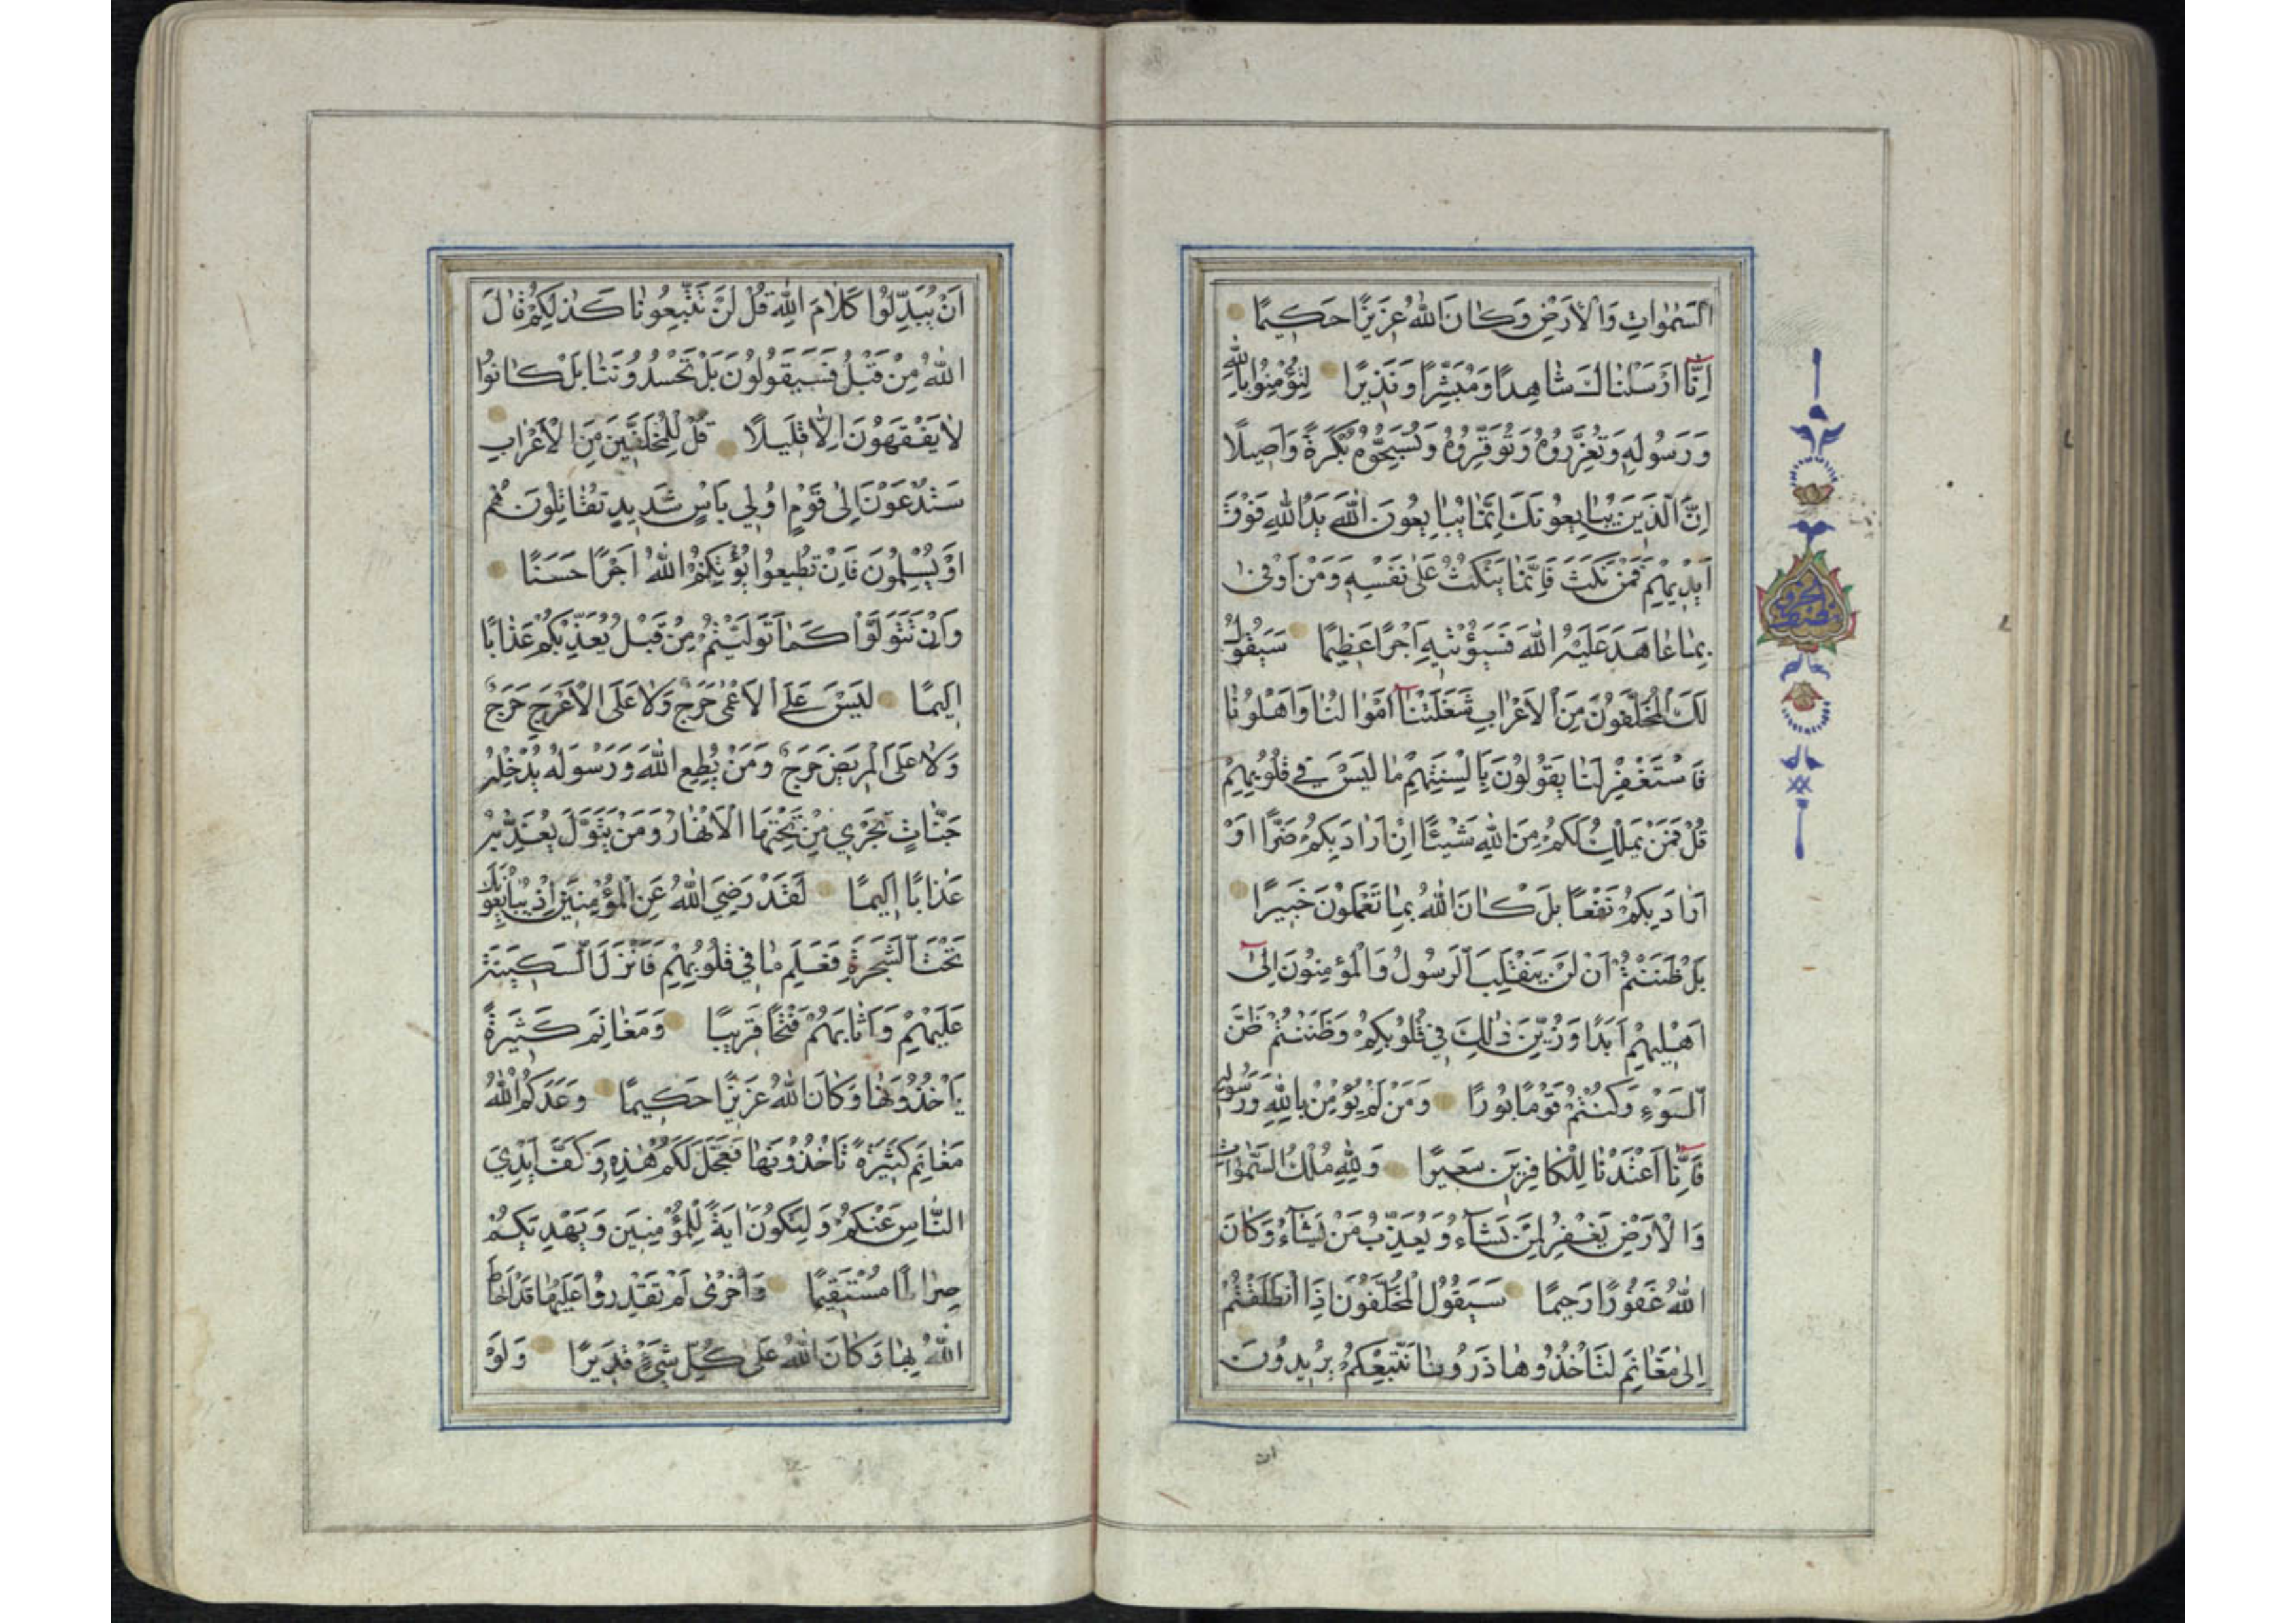 السَّمٰوَاتِ وَالْاَرْضِ وَكَانَ اللهُ عَزِيزًا حَكِيمًا
اِنَّٓا اَرْسَلْنَاكَ شَاهِدًا وَمُبَشِّرًا وَنَذِيرًا لِتُؤْمِنُوا بِاللهِ
وَرَسُولِهِ وَتُعَزِّرُوهُ وَتُوَقِّرُوهُ وَتُسَبِّحُوهُ بُكْرَةً وَاَصِيلًا
اِنَّ الَّذِينَ يُبَايِعُونَكَ اِنَّمَا يُبَايِعُونَ اللهَ يَدُ اللهِ فَوْقَ
اَيْدِيهِمْ فَمَنْ نَكَثَ فَاِنَّمَا يَنْكُثُ عَلٰى نَفْسِهِ وَمَنْ اَوْفٰى
بِمَا عَاهَدَ عَلَيْهُ اللهَ فَسَيُؤْتِيهِ اَجْرًا عَظِيمًا سَيَقُولُ
لَكَ الْمُخَلَّفُونَ مِنَ الْاَعْرَابِ شَغَلَتْنَٓا اَمْوَالُنَا وَاَهْلُونَا
فَاسْتَغْفِرْ لَنَا يَقُولُونَ بِاَلْسِنَتِهِمْ مَا لَيْسَ فِي قُلُوبِهِمْ
قُلْ فَمَنْ يَمْلِكُ لَكُمْ مِنَ اللهِ شَيْئًا اِنْ اَرَادَ بِكُمْ ضَرًّا اَوْ
اَرَادَ بِكُمْ نَفْعًا بَلْ كَانَ اللهُ بِمَا تَعْمَلُونَ خَبِيرًا
بَلْ ظَنَنْتُمْ اَنْ لَنْ يَنْقَلِبَ الرَّسُولُ وَالْمُؤْمِنُونَ اِلٰٓى
اَهْلِيهِمْ اَبَدًا وَزُيِّنَ ذٰلِكَ فِي قُلُوبِكُمْ وَظَنَنْتُمْ ظَنَّ
السَّوْءِ وَكُنْتُمْ قَوْمًا بُورًا وَمَنْ لَمْ يُؤْمِنْ بِاللهِ وَرَسُولِهِ
فَاِنَّٓا اَعْتَدْنَا لِلْكَافِرِينَ سَعِيرًا وَلِلّٰهِ مُلْكُ السَّمٰوَاتِ
وَالْاَرْضِ يَغْفِرُ لِمَنْ يَشَٓاءُ وَيُعَذِّبُ مَنْ يَشَٓاءُ وَكَانَ
اللهُ غَفُورًا رَحِيمًا سَيَقُولُ الْمُخَلَّفُونَ اِذَا انْطَلَقْتُمْ
اِلٰى مَغَانِمَ لِتَأْخُذُوهَا ذَرُونَا نَتَّبِعْكُمْ يُرِيدُونَ
ان
اَنْ يُبَدِّلُوا كَلَامَ اللهِ قُلْ لَنْ تَتَّبِعُونَا كَذٰلِكُمْ قَالَ
اللهُ مِنْ قَبْلُ فَسَيَقُولُونَ بَلْ تَحْسُدُونَنَا بَلْ كَانُوا
لَا يَفْقَهُونَ اِلَّا قَلِيلًا قُلْ لِلْمُخَلَّفِينَ مِنَ الْاَعْرَابِ
سَتُدْعَوْنَ اِلٰى قَوْمٍ اُولِي بَأْسٍ شَدِيدٍ تُقَاتِلُونَهُمْ
اَوْ يُسْلِمُونَ فَاِنْ تُطِيعُوا يُؤْتِكُمُ اللهُ اَجْرًا حَسَنًا
وَاِنْ تَتَوَلَّوْا كَمَا تَوَلَّيْتُمْ مِنْ قَبْلُ يُعَذِّبْكُمْ عَذَابًا
اَلِيمًا لَيْسَ عَلَى الْاَعْمٰى حَرَجٌ وَلَا عَلَى الْاَعْرَجِ حَرَجٌ
وَلَا عَلَى الْمَرِيضِ حَرَجٌ وَمَنْ يُطِعِ اللهَ وَرَسُولَهُ يُدْخِلْهُ
جَنَّاتٍ تَجْرِي مِنْ تَحْتِهَا الْاَنْهَارُ وَمَنْ يَتَوَلَّ يُعَذِّبْهُ
عَذَابًا اَلِيمًا لَقَدْ رَضِيَ اللهُ عَنِ الْمُؤْمِنِينَ اِذْ يُبَايِعُونَكَ
تَحْتَ الشَّجَرَةِ فَعَلِمَ مَا فِي قُلُوبِهِمْ فَاَنْزَلَ السَّكِينَةَ
عَلَيْهِمْ وَاَثَابَهُمْ فَتْحًا قَرِيبًا وَمَغَانِمَ كَثِيرَةً
يَأْخُذُونَهَا وَكَانَ اللهُ عَزِيزًا حَكِيمًا وَعَدَكُمُ اللهُ
مَغَانِمَ كَثِيرَةً تَأْخُذُونَهَا فَعَجَّلَ لَكُمْ هٰذِهِ وَكَفَّ اَيْدِيَ
النَّاسِ عَنْكُمْ وَلِتَكُونَ اٰيَةً لِلْمُؤْمِنِينَ وَيَهْدِيَكُمْ
صِرَاطًا مُسْتَقِيمًا وَاُخْرٰى لَمْ تَقْدِرُوا عَلَيْهَا قَدْ اَحَاطَ
اللهُ بِهَا وَكَانَ اللهُ عَلٰى كُلِّ شَيْءٍ قَدِيرًا وَلَوْ